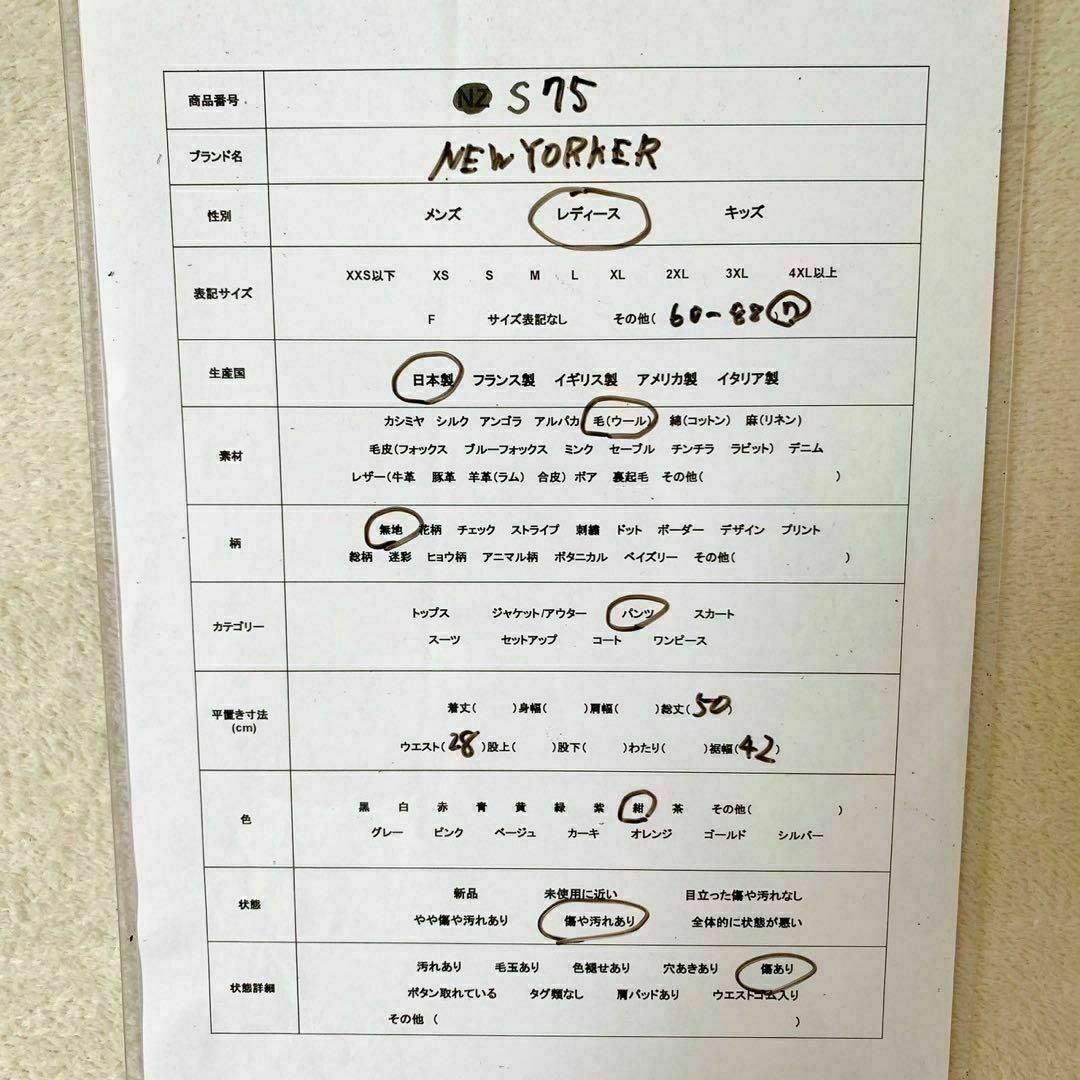 商品番号 NZ S75
ブランド名 NEWYORKER
性別 メンズ レディース キッズ
表記サイズ XXS以下 XS S M L XL 2XL 3XL 4XL以上
F サイズ表記なし その他( 60-88 7
生産国 日本製 フランス製 イギリス製 アメリカ製 イタリア製
素材 カシミヤ シルク アンゴラ アルパカ 毛(ウール) 綿(コットン) 麻(リネン)
毛皮(フォックス ブルーフォックス ミンク セーブル チンチラ ラビット) デニム
レザー(牛革 豚革 羊革(ラム) 合皮) ボア 裏起毛 その他( )
柄 無地 花柄 チェック ストライプ 刺繍 ドット ボーダー デザイン プリント
総柄 迷彩 ヒョウ柄 アニマル柄 ボタニカル ペイズリー その他( )
カテゴリー トップス ジャケット/アウター パンツ スカート
スーツ セットアップ コート ワンピース
平置き寸法 (cm) 着丈( )身幅( )肩幅( )総丈(50)
ウエスト(28)股上( )股下( )わたり( )裾幅(42)
色 黒 白 赤 青 黄 緑 紫 紺 茶 その他( )
グレー ピンク ベージュ カーキ オレンジ ゴールド シルバー
状態 新品 未使用に近い 目立った傷や汚れなし
やや傷や汚れあり 傷や汚れあり 全体的に状態が悪い
状態詳細 汚れあり 毛玉あり 色褪せあり 穴あきあり 傷あり
ボタン取れている タグ類なし 肩パッドあり ウエストゴム入り
その他 ( )